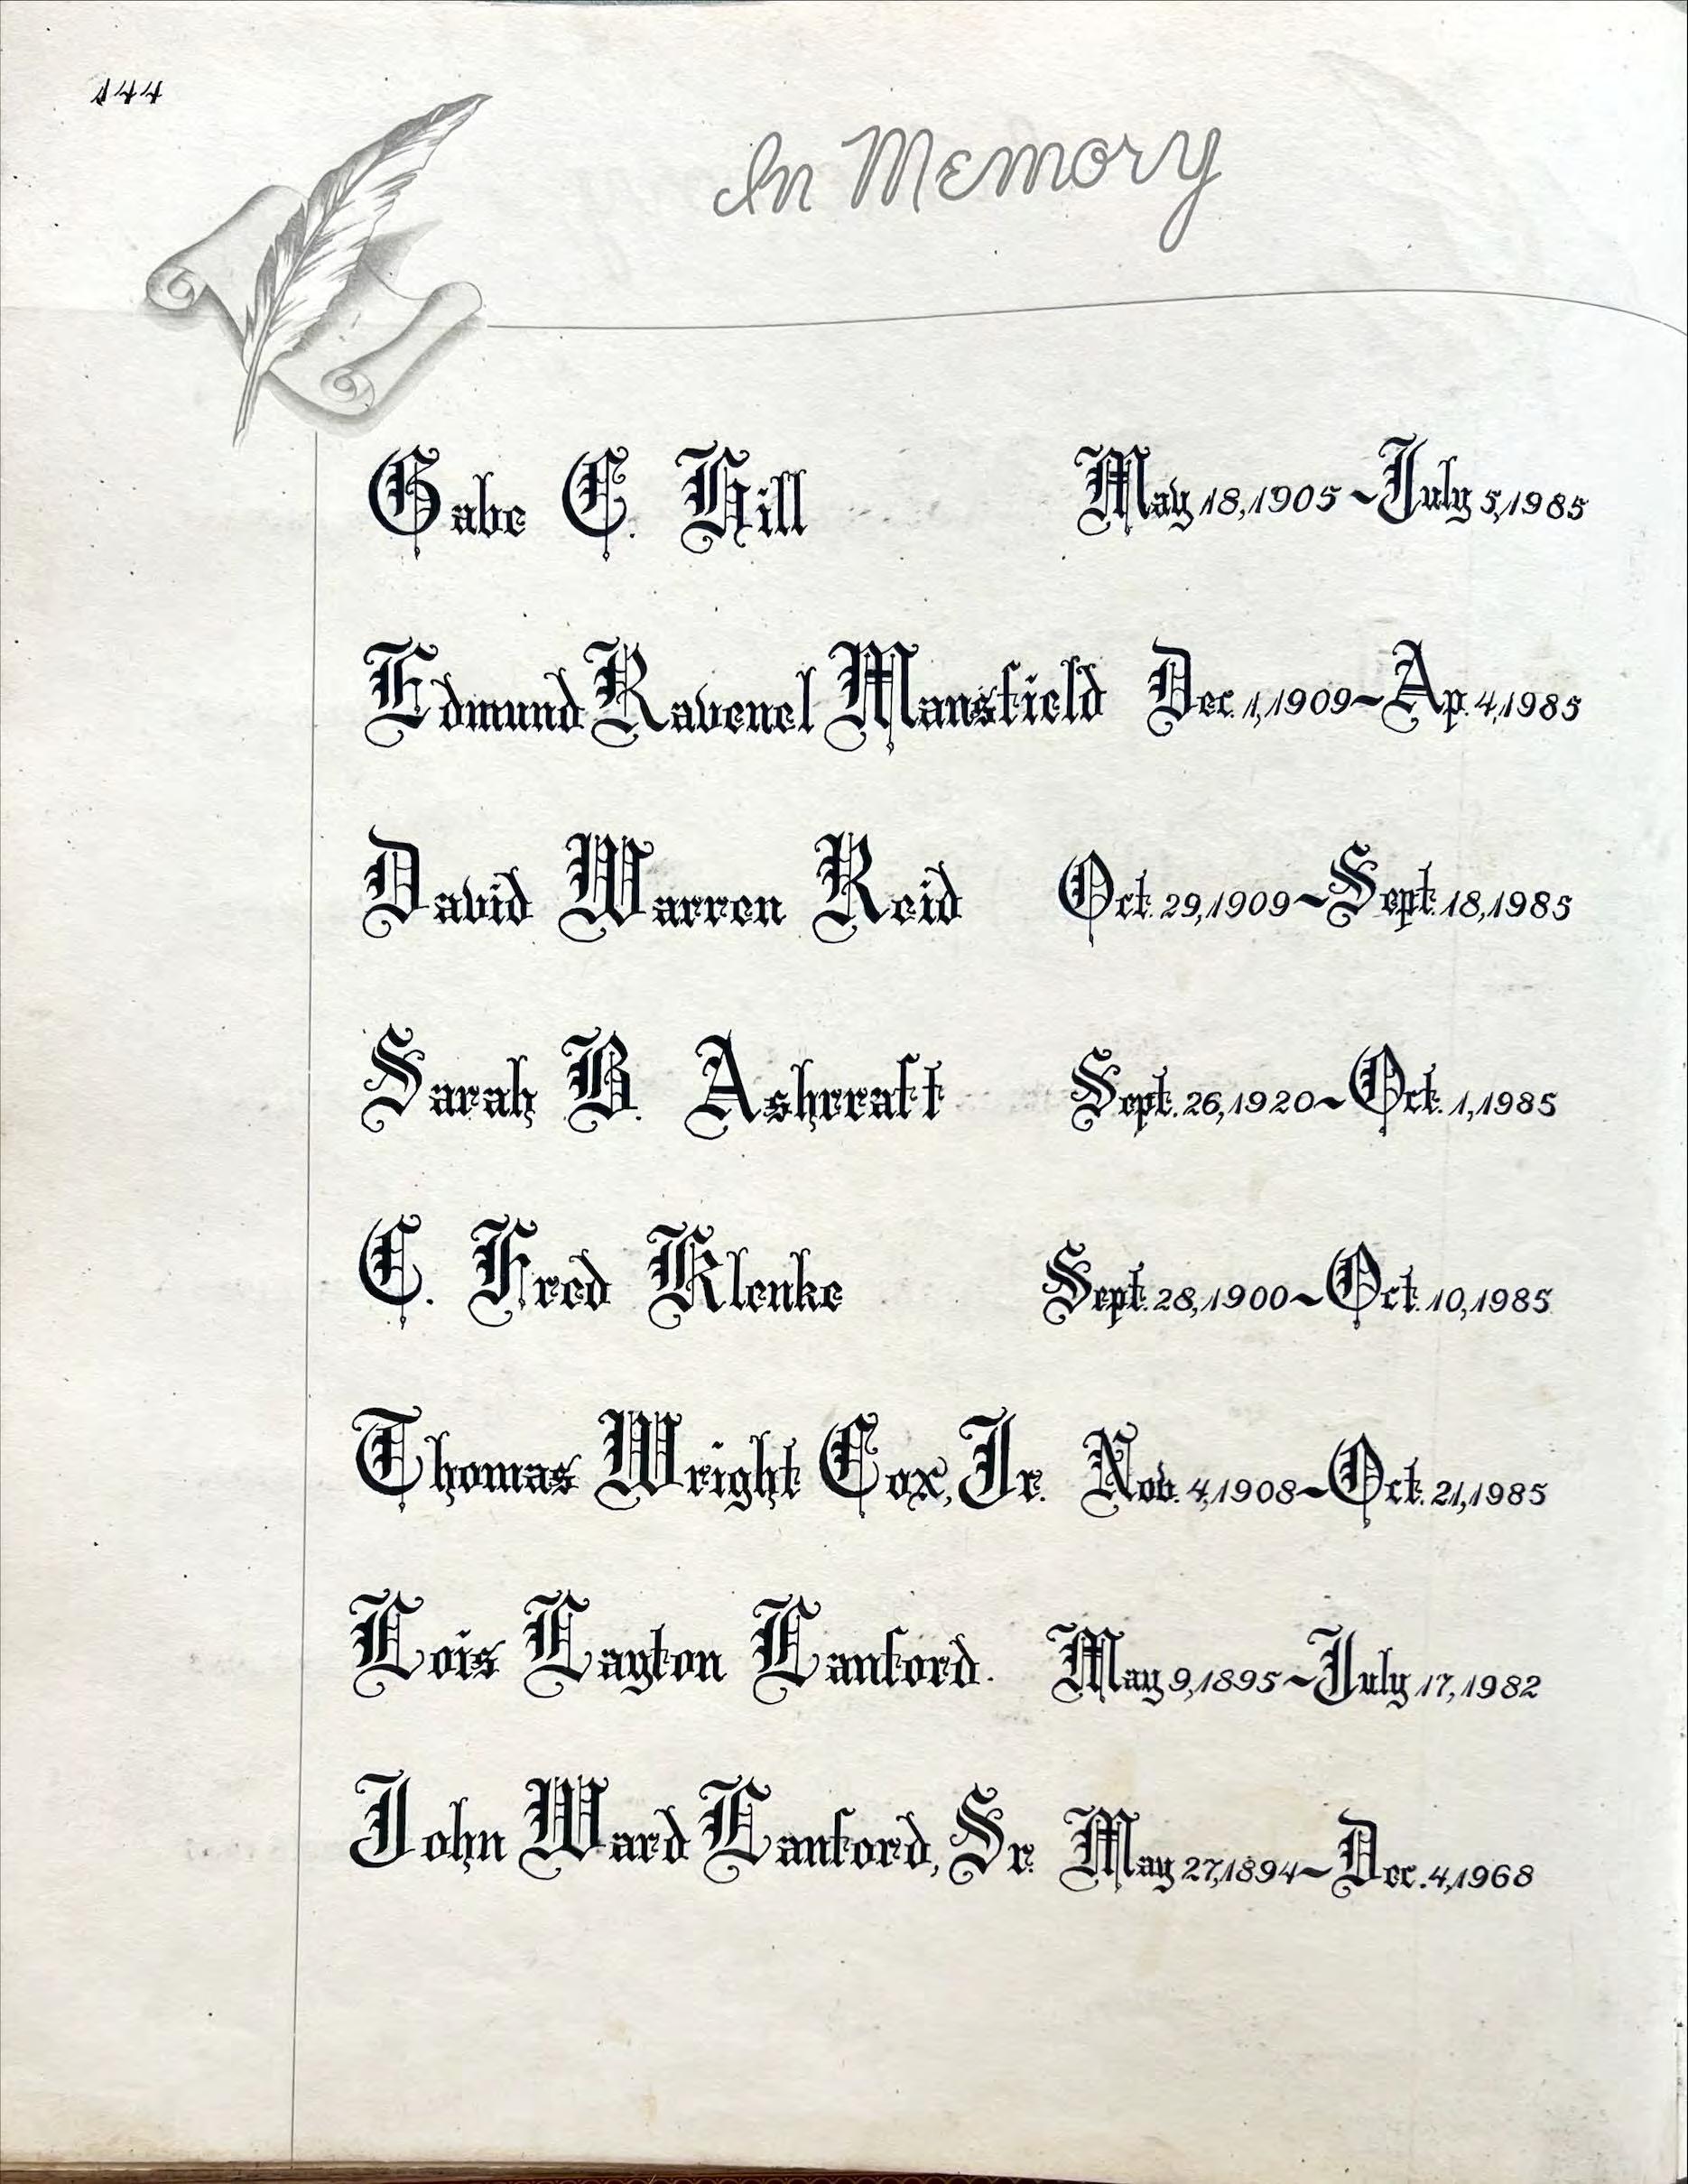 144
In Memory
Gabe C. Hill May 18, 1905 ~ July 5, 1985
Edmund Ravenel Mansfield Dec. 1, 1909 ~ Ap. 4, 1985
David Warren Reid Oct. 29, 1909 ~ Sept. 18, 1985
Sarah B. Ashcraft Sept. 26, 1920 ~ Oct. 1, 1985
C. Fred Klenke Sept. 28, 1900 ~ Oct. 10, 1985
Thomas Wright Cox, Jr. Nov. 4, 1908 ~ Oct. 21, 1985
Lois Layton Lanford. May 9, 1895 ~ July 17, 1982
John Ward Lanford, Sr. May 27, 1894 ~ Dec. 4, 1968